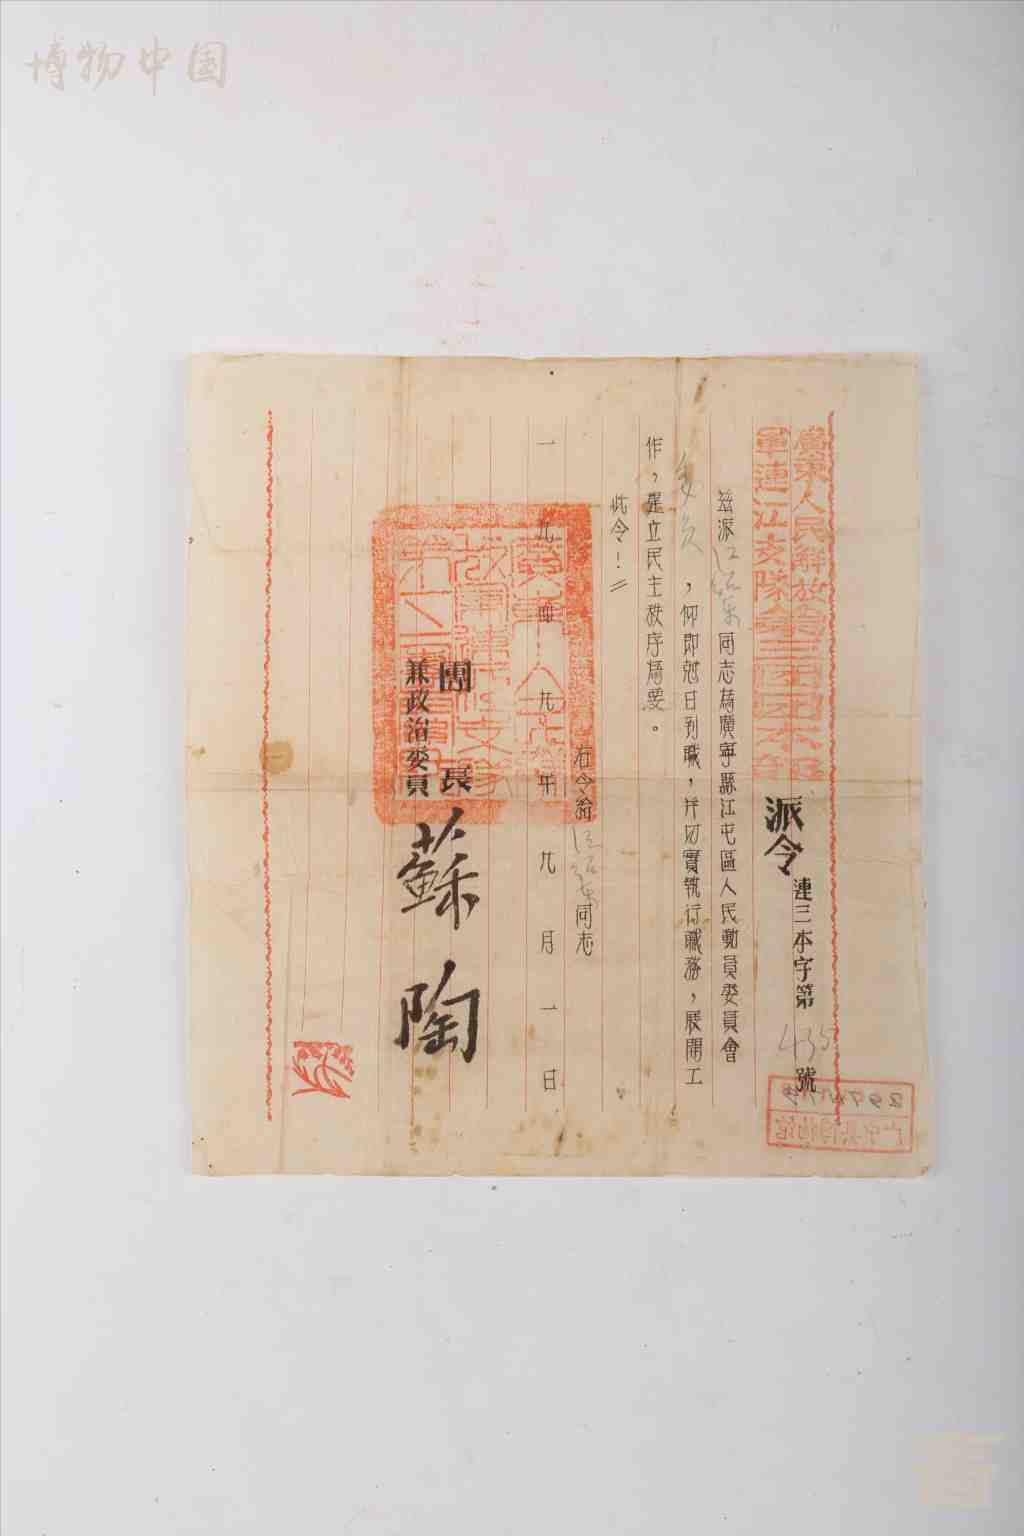 博物中国
廣東人民解放
軍連江支隊第三團團本部
派令
連三本字第435號
茲派江紹東同志為廣寧縣江屯區人民動員委員會
委員，仰即尅日到職，并切實執行職務，展開工
作，建立民主秩序為要。
此令！＝
右令給江紹東同志
一九四九年九月一日
團長
兼政治委員
蘇陶
广宁县博物馆